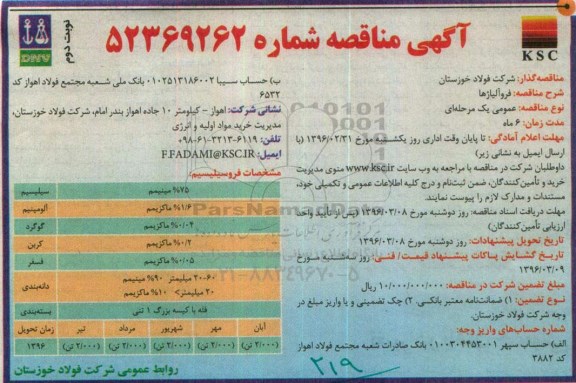 آگهی مناقصه شماره ۵۲۳۶۹۲۶۲
نوبت دوم
DNV
KSC
مناقصه‌گذار: شرکت فولاد خوزستان
شرح مناقصه: فروآلیاژها
نوع مناقصه: عمومی یک مرحله‌ای
مدت زمان: ۶ ماه
مهلت اعلام آمادگی: تا پایان وقت اداری روز یکشنبه مورخ ۱۳۹۶/۰۲/۳۱ (با
ارسال ایمیل به نشانی زیر)
داوطلبان شرکت در مناقصه با مراجعه به وب سایت www.ksc.ir منوی مدیریت
خرید و تأمین‌کنندگان، ضمن ثبت‌نام و درج کلیه اطلاعات عمومی و تکمیلی خود،
مستندات و مدارک لازم را پیوست نمایند.
مهلت دریافت اسناد مناقصه: روز دوشنبه مورخ ۱۳۹۶/۰۳/۰۸ (پس از تأیید واحد
ارزیابی تأمین‌کنندگان)
تاریخ تحویل پیشنهادات: روز دوشنبه مورخ ۱۳۹۶/۰۳/۰۸
تاریخ گشایش پاکات پیشنهاد قیمت/ فنی: روز سه‌شنبه مورخ
۱۳۹۶/۰۳/۰۹
مبلغ تضمین شرکت در مناقصه: ۱۰/۰۰۰/۰۰۰/۰۰۰ ریال
نوع تضمین: ۱) ضمانت‌نامه معتبر بانکی، ۲) چک تضمینی و یا واریز مبلغ در
وجه شرکت فولاد خوزستان.
شماره حساب‌های واریز وجه:
الف) حساب سپهر ۰۱۰۰۳۰۴۴۵۳۰۰۱ بانک صادرات شعبه مجتمع فولاد اهواز
کد ۳۸۸۲
ب) حساب سیبا ۰۱۰۲۵۱۳۱۸۶۰۰۲ بانک ملی شعبه مجتمع فولاد اهواز کد
۶۵۳۲
نشانی شرکت: اهواز - کیلومتر ۱۰ جاده اهواز بندر امام، شرکت فولاد خوزستان،
مدیریت خرید مواد اولیه و انرژی
تلفن: ۶۱۱۹-۳۲۱۳-۰۶۱-۰۹۸
ایمیل: F.FADAMI@KSC.IR
مشخصات فروسیلیسیم:
سیلیسیم ۷۵% مینیمم
آلومینیم ۱/۶% ماکزیمم
گوگرد ۰/۰۴% ماکزیمم
کربن ۰/۲% ماکزیمم
فسفر ۰/۰۵% ماکزیمم
دانه‌بندی ۲۰-۶۰ میلیمتر ۹۰% مینیمم
۲۰ میلیمتر> ۱۰% ماکزیمم
بسته‌بندی فله با کیسه بزرگ ۱ تنی
زمان تحویل تیر مرداد شهریور مهر آبان
۱۳۹۶ (۲/۰۰۰ تن) (۲/۰۰۰ تن) (۲/۰۰۰ تن) (۲/۰۰۰ تن) (۲/۰۰۰ تن)
روابط عمومی شرکت فولاد خوزستان
۲۱۹
ParsNamadData
۰۲۱-۸۸۳۴۹۶۷۰-۵